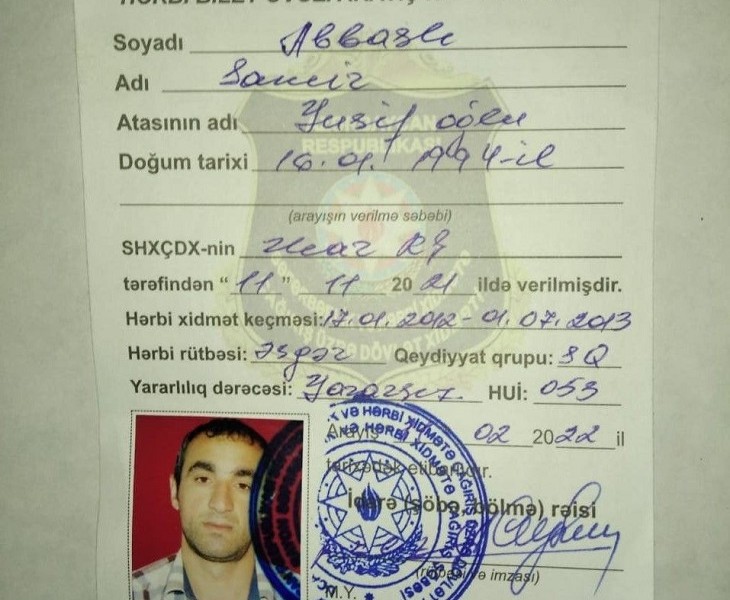 HƏRBİ BİLET ƏVƏZİ ARAYIŞ
Soyadı Abbaslı
Adı Samir
Atasının adı Yusif oğlu
Doğum tarixi 16.01.1994-il
(arayışın verilmə səbəbi)
SHXÇDX-nin
tərəfindən “11” 11 2021 ildə verilmişdir.
Hərbi xidmət keçməsi: 17.01.2012-01.07.2013
Hərbi rütbəsi: Əsgər Qeydiyyat qrupu: SQ
Yararlılıq dərəcəsi: HUİ: 053
Arayış 02 2022 il
tarixədək etibarlıdır.
İdarə (şöbə, bölmə) rəisi
(rütbəsi və imzası)
M.Y.